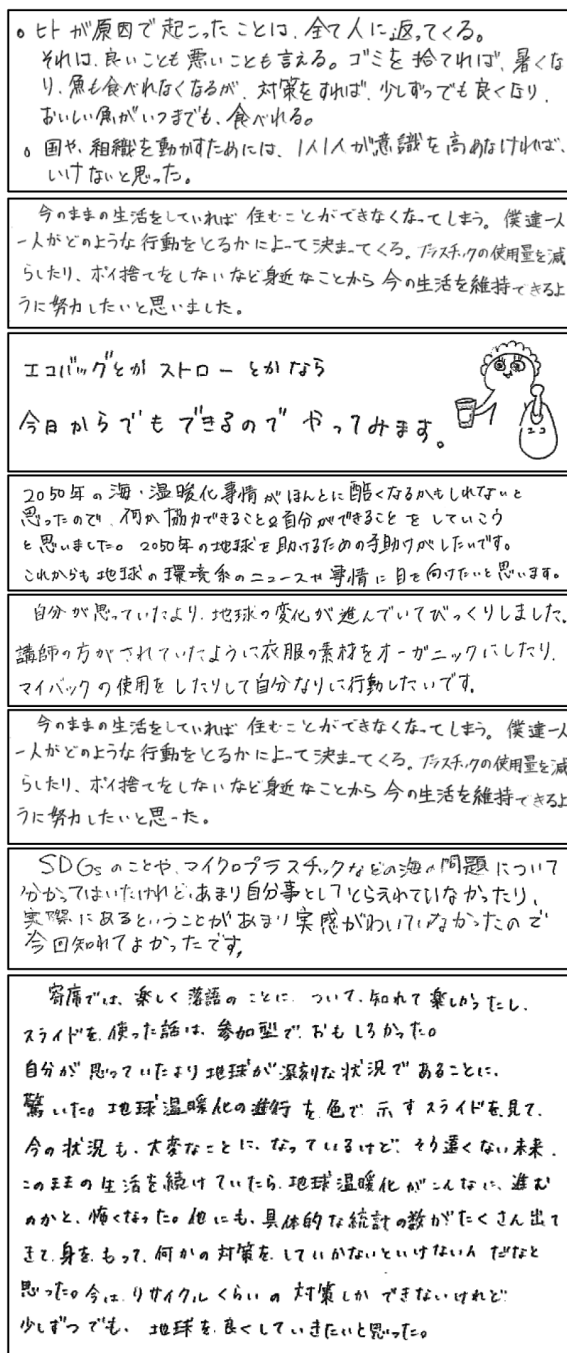 。ヒトが原因で起こったことは、全て人に返ってくる。
それは、良いことも悪いことも言える。ゴミを捨てれば、暑くな
り、魚も食べれなくなるが、対策をすれば、少しずつでも良くなり、
おいしい魚がいつまでも、食べれる。
。国や、組織を動かすためには、1人1人が意識を高めなければ、
いけないと思った。
今のままの生活をしていれば 住むことができなくなってしまう。僕達一人
一人がどのような行動をとるかによって決まってくる。プラスチックの使用量を減
らしたり、ポイ捨てをしないなど身近なことから今の生活を維持できるよ
うに努力したいと思いました。
エコバッグとかストローとかなら
今日からでもできるのでやってみます。
エコ
2050年の海・温暖化事情がほんとに酷くなるかもしれないと
思ったので、何か協力できること&自分ができることをしていこう
と思いました。2050年の地球を助けるための手助けがしたいです。
これからも地球の環境系のニュースや事情に目を向けたいと思います。
自分が思っていたより、地球の変化が進んでいてびっくりしました。
講師の方がされていたように衣服の素材をオーガニックにしたり、
マイバックの使用をしたりして自分なりに行動したいです。
今のままの生活をしていれば 住むことができなくなってしまう。僕達一人
一人がどのような行動をとるかによって決まってくる。プラスチックの使用量を減
らしたり、ポイ捨てをしないなど身近なことから今の生活を維持できるよ
うに努力したいと思った。
SDGsのことや、マイクロプラスチックなどの海の問題について
分かってはいたけれど、あまり自分事としてとらえれていなかったり、
実際にあるということがあまり実感がわいていなかったので
今回知れてよかったです。
寄席では、楽しく落語のことに、ついて、知れて楽しかったし、
スライドを、使った話は、参加型で、おもしろかった。
自分が思っていたより地球が深刻な状況であることに、
驚いた。地球温暖化の進行を色で示すスライドを見て、
今の状況も、大変なことに、なっているけど、そう遠くない未来、
このままの生活を続けていたら、地球温暖化がこんなに、進む
のかと、怖くなった。他にも、具体的な統計の数がたくさん出て
きて、身を、もって、何かの対策を、していかないといけないんだなと
思った。今は、リサイクルくらいの対策しかできないけれど
少しずつでも、地球を良くしていきたいと思った。